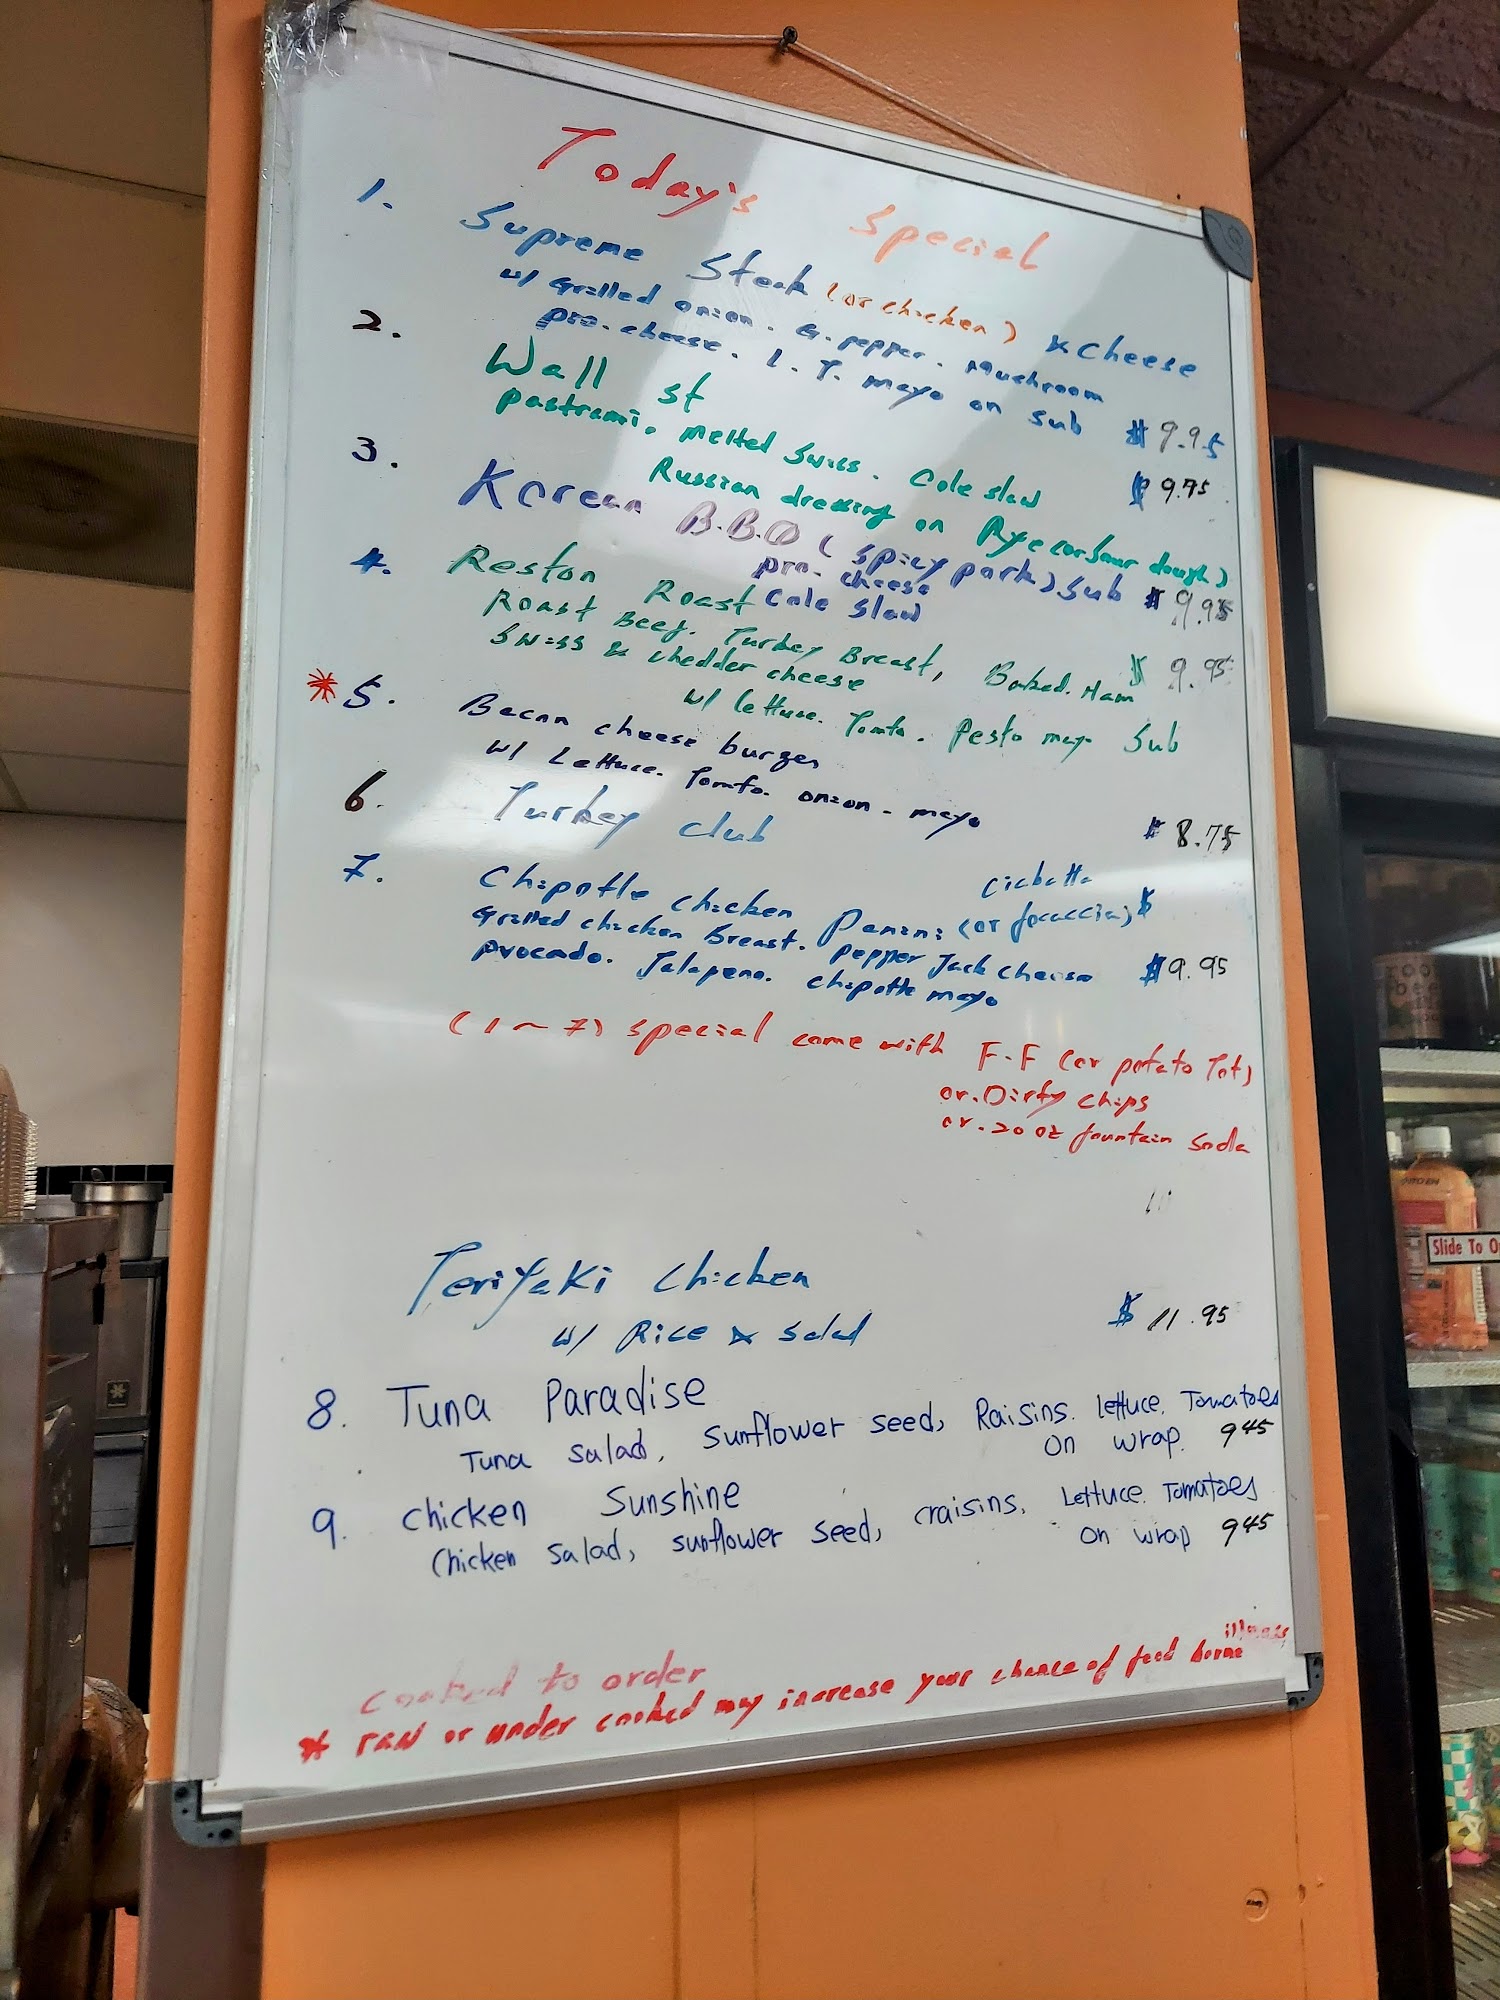 Today's Special
1. Supreme Steak (or chicken) & Cheese
w/ Grilled onion. G. pepper. Mushroom
pro. cheese. L. T. mayo on sub $9.95
2. Wall st $9.95
pastrami. melted Swiss. Cole slaw
Russian dressing on Rye (or Sour dough)
3. Korean B.B.Q (spicy pork) Sub $9.95
pro. cheese
Cole Slaw
4. Reston Roast $9.95
Roast Beef. Turkey Breast, Baked. Ham
Swiss & chedder cheese
w/ lettuce. Tomto. Pesto mayo Sub
* 5. Bacon cheese burger $8.75
w/ Lettuce. Tomto. onion. mayo
6. Turkey club $
7. Chipotle chicken Panini Ciabatta (or focaccia) $9.95
Grilled chicken Breast. pepper Jack Cheese
Avocado. Jalapeno. chipotle mayo
(1 ~ 7) special come with F.F (or potato Tot)
or. Dirty chips
or. 20 oz fountain soda
Teriyaki Chicken
w/ Rice & Salad $11.95
8. Tuna Paradise
Tuna salad, sunflower seed, Raisins. lettuce. Tomatoes
on wrap. 9 45
9. chicken Sunshine
Chicken salad, sunflower seed, craisins, Lettuce. Tomatoes
on wrap 9 45
cooked to order
* raw or under cooked may increase your chance of food borne illness
Slide To O